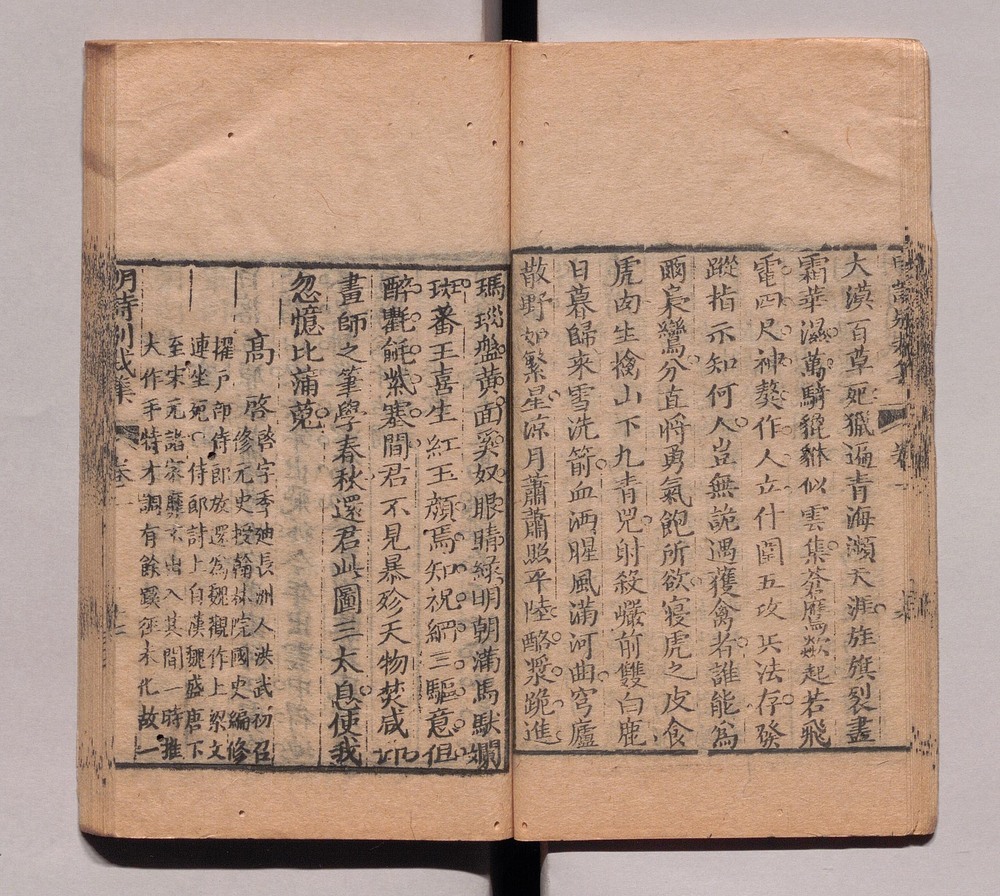 大漠百草死獵遍青海瀕天涯旌旗裂盡
霜華濕萬騎貔貅似雲集蒼鷹欻起若飛
電四尺神獒作人立什圍五攻兵法存發
蹤指示知何人豈無詭遇獲禽者誰能為
爾哀鸞分直將勇氣飽所欲寢虎之皮食
虎肉生擒山下九青兕射殺巖前雙白鹿
日暮歸來雪洗箭血洒腥風滿河曲穹廬
散野如繁星涼月蕭蕭照平陸酪漿跪進
瑪瑙盤黃面奚奴眼睛綠明朝滿馬馱斕
斑蕃王喜生紅玉顏焉知祝網三驅意俱
醉氍毹紫塞間君不見暴殄天物焚咸丘
畫師之筆學春秋還君此圖三太息使我
忽憶比蒲蒐
高啓 啓字季廸長洲人洪武初召
修元史授翰林院國史編修
擢戶部侍郎放還為魏觀作上梁文
連坐死 侍郎詩上自漢魏盛唐下
至宋元諸家靡不出入其間一時推
大作手特才調有餘蹊徑未化故一
明詩別裁集 卷一